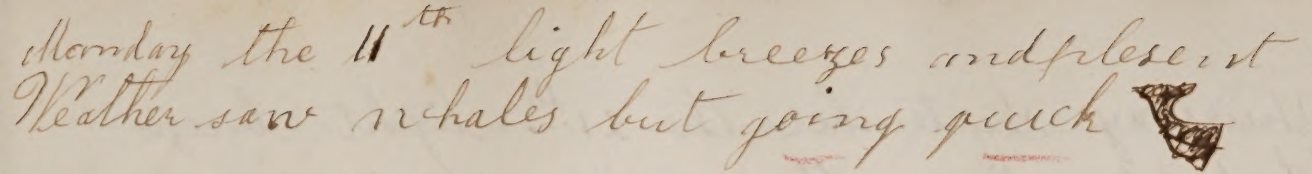 Monday the 11th light breezes and plesent
Weather saw whales but going quick